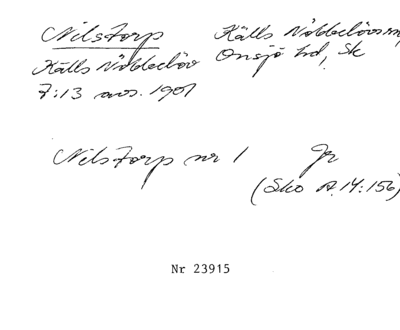 Nilstorp Källs Nöbbelövs sn,
Källs Nöbbelöv Onsjö hd, Sk
7:13 avs. 1901
Nilstorp nr 1 Jr
(Sko A.14:156)
Nr 23915